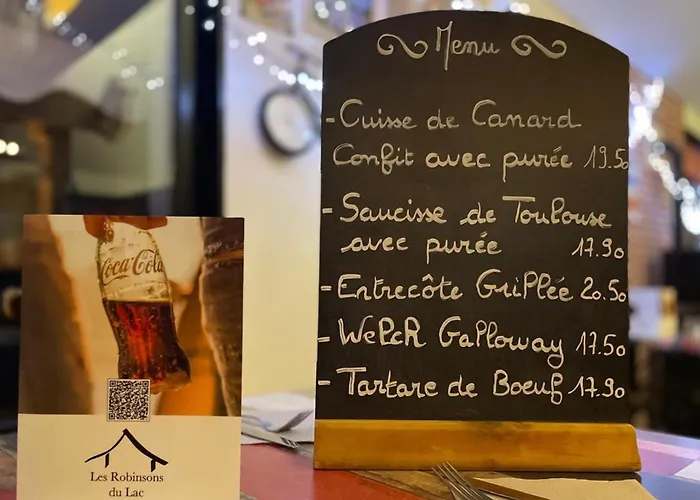 Menu
- Cuisse de Canard
Confit avec purée 19.50
- Saucisse de Toulouse
avec purée 17.90
- Entrecôte Grillée 20.50
- Welch Galloway 17.50
- Tartare de Boeuf 17.90
Coca-Cola
Les Robinsons
du Lac